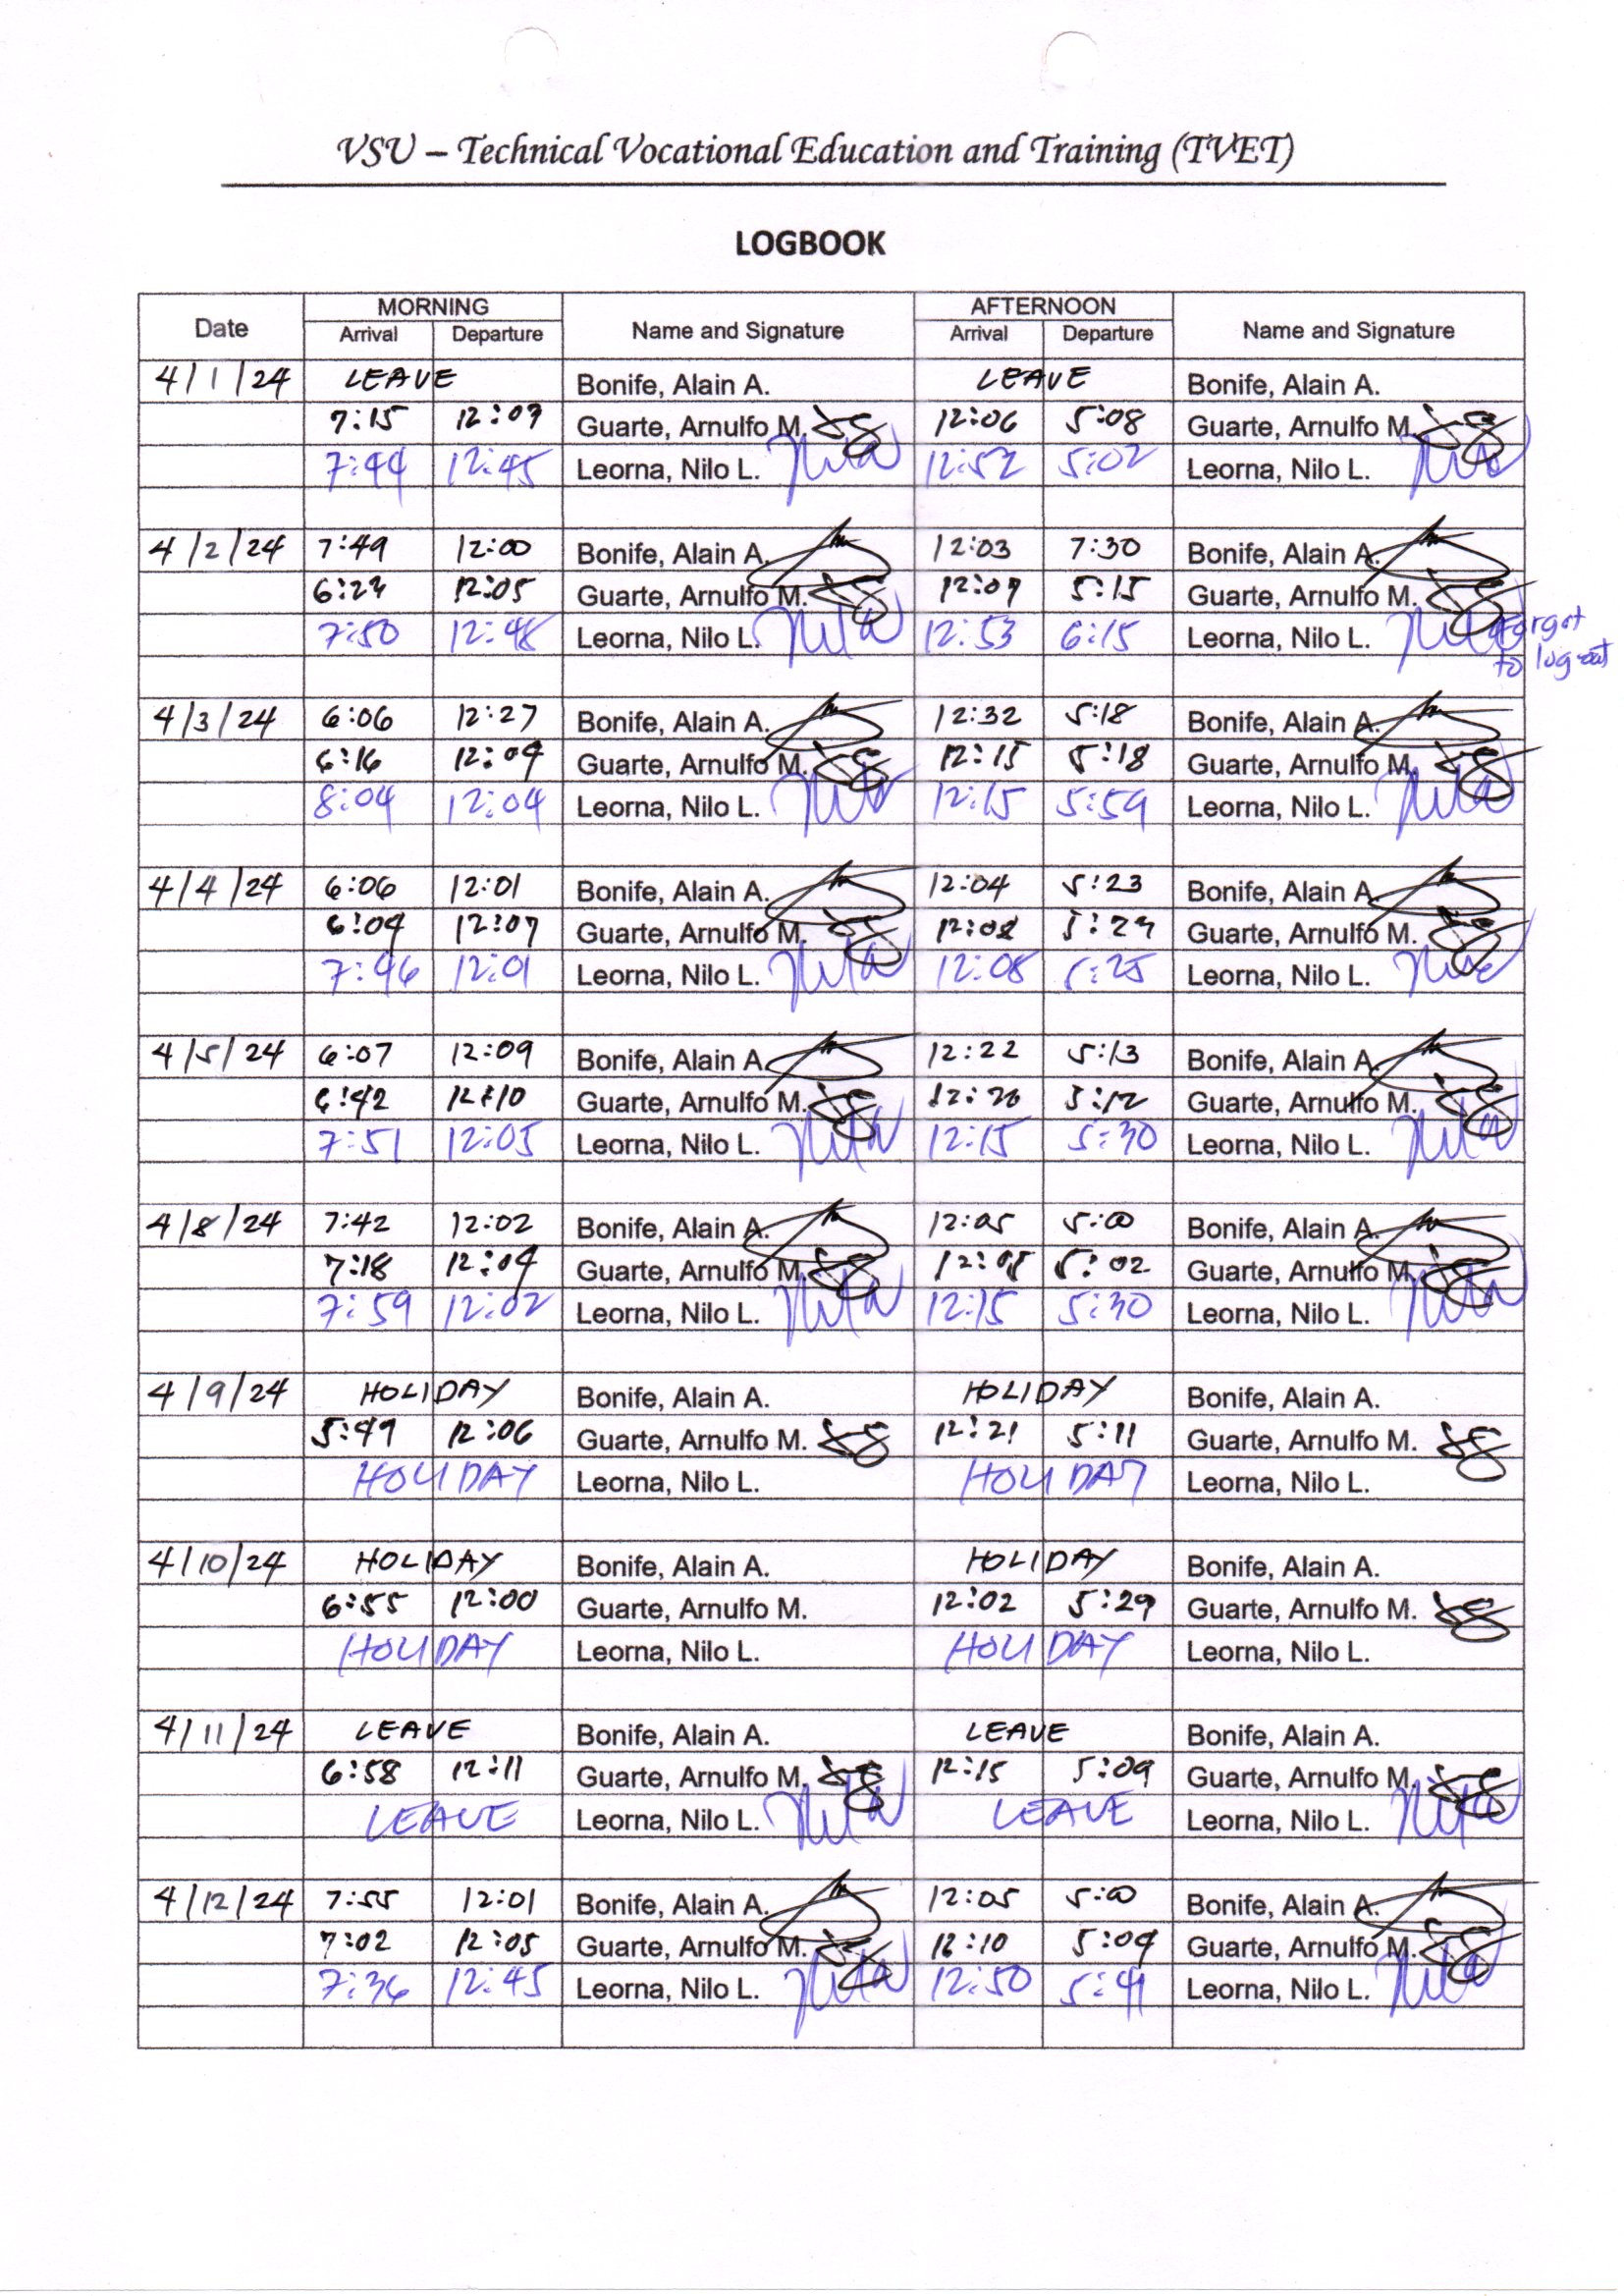 VSU – Technical Vocational Education and Training (TVET)
LOGBOOK
Date MORNING Name and Signature AFTERNOON Name and Signature
Arrival Departure Arrival Departure
4/1/24 LEAVE Bonife, Alain A. LEAVE Bonife, Alain A.
7:15 12:03 Guarte, Arnulfo M. 12:06 5:08 Guarte, Arnulfo M.
7:44 12:45 Leorna, Nilo L. 12:52 5:02 Leorna, Nilo L.
4/2/24 7:49 12:00 Bonife, Alain A. 12:03 7:30 Bonife, Alain A.
12:05 Guarte, Arnulfo M. 5:15 Guarte, Arnulfo M.
7:50 12:48 Leorna, Nilo L. 12:53 6:15 Leorna, Nilo L. forgot
to log out
4/3/24 6:06 12:27 Bonife, Alain A. 12:32 5:18 Bonife, Alain A.
6:16 12:04 Guarte, Arnulfo M. 12:15 5:18 Guarte, Arnulfo M.
8:04 12:04 Leorna, Nilo L. 12:15 5:59 Leorna, Nilo L.
4/4/24 6:06 12:01 Bonife, Alain A. 12:04 5:23 Bonife, Alain A.
6:04 12:07 Guarte, Arnulfo M. 12:08 Guarte, Arnulfo M.
7:46 12:01 Leorna, Nilo L. 12:08 5:25 Leorna, Nilo L.
4/5/24 6:07 12:09 Bonife, Alain A. 12:22 5:13 Bonife, Alain A.
6:42 12:10 Guarte, Arnulfo M. 5:12 Guarte, Arnulfo M.
7:51 12:05 Leorna, Nilo L. 12:15 5:30 Leorna, Nilo L.
4/8/24 7:42 12:02 Bonife, Alain A. 12:05 5:00 Bonife, Alain A.
7:18 12:04 Guarte, Arnulfo M. 5:02 Guarte, Arnulfo M.
7:59 12:02 Leorna, Nilo L. 12:15 5:30 Leorna, Nilo L.
4/9/24 HOLIDAY Bonife, Alain A. HOLIDAY Bonife, Alain A.
5:49 12:06 Guarte, Arnulfo M. 12:21 5:11 Guarte, Arnulfo M.
HOLIDAY Leorna, Nilo L. HOLIDAY Leorna, Nilo L.
4/10/24 HOLIDAY Bonife, Alain A. HOLIDAY Bonife, Alain A.
6:55 12:00 Guarte, Arnulfo M. 12:02 5:29 Guarte, Arnulfo M.
HOLIDAY Leorna, Nilo L. HOLIDAY Leorna, Nilo L.
4/11/24 LEAVE Bonife, Alain A. LEAVE Bonife, Alain A.
6:58 12:11 Guarte, Arnulfo M. 12:15 5:09 Guarte, Arnulfo M.
LEAVE Leorna, Nilo L. LEAVE Leorna, Nilo L.
4/12/24 7:55 12:01 Bonife, Alain A. 12:05 5:00 Bonife, Alain A.
7:02 12:05 Guarte, Arnulfo M. 12:10 5:04 Guarte, Arnulfo M.
7:36 12:45 Leorna, Nilo L. 12:50 5:41 Leorna, Nilo L.